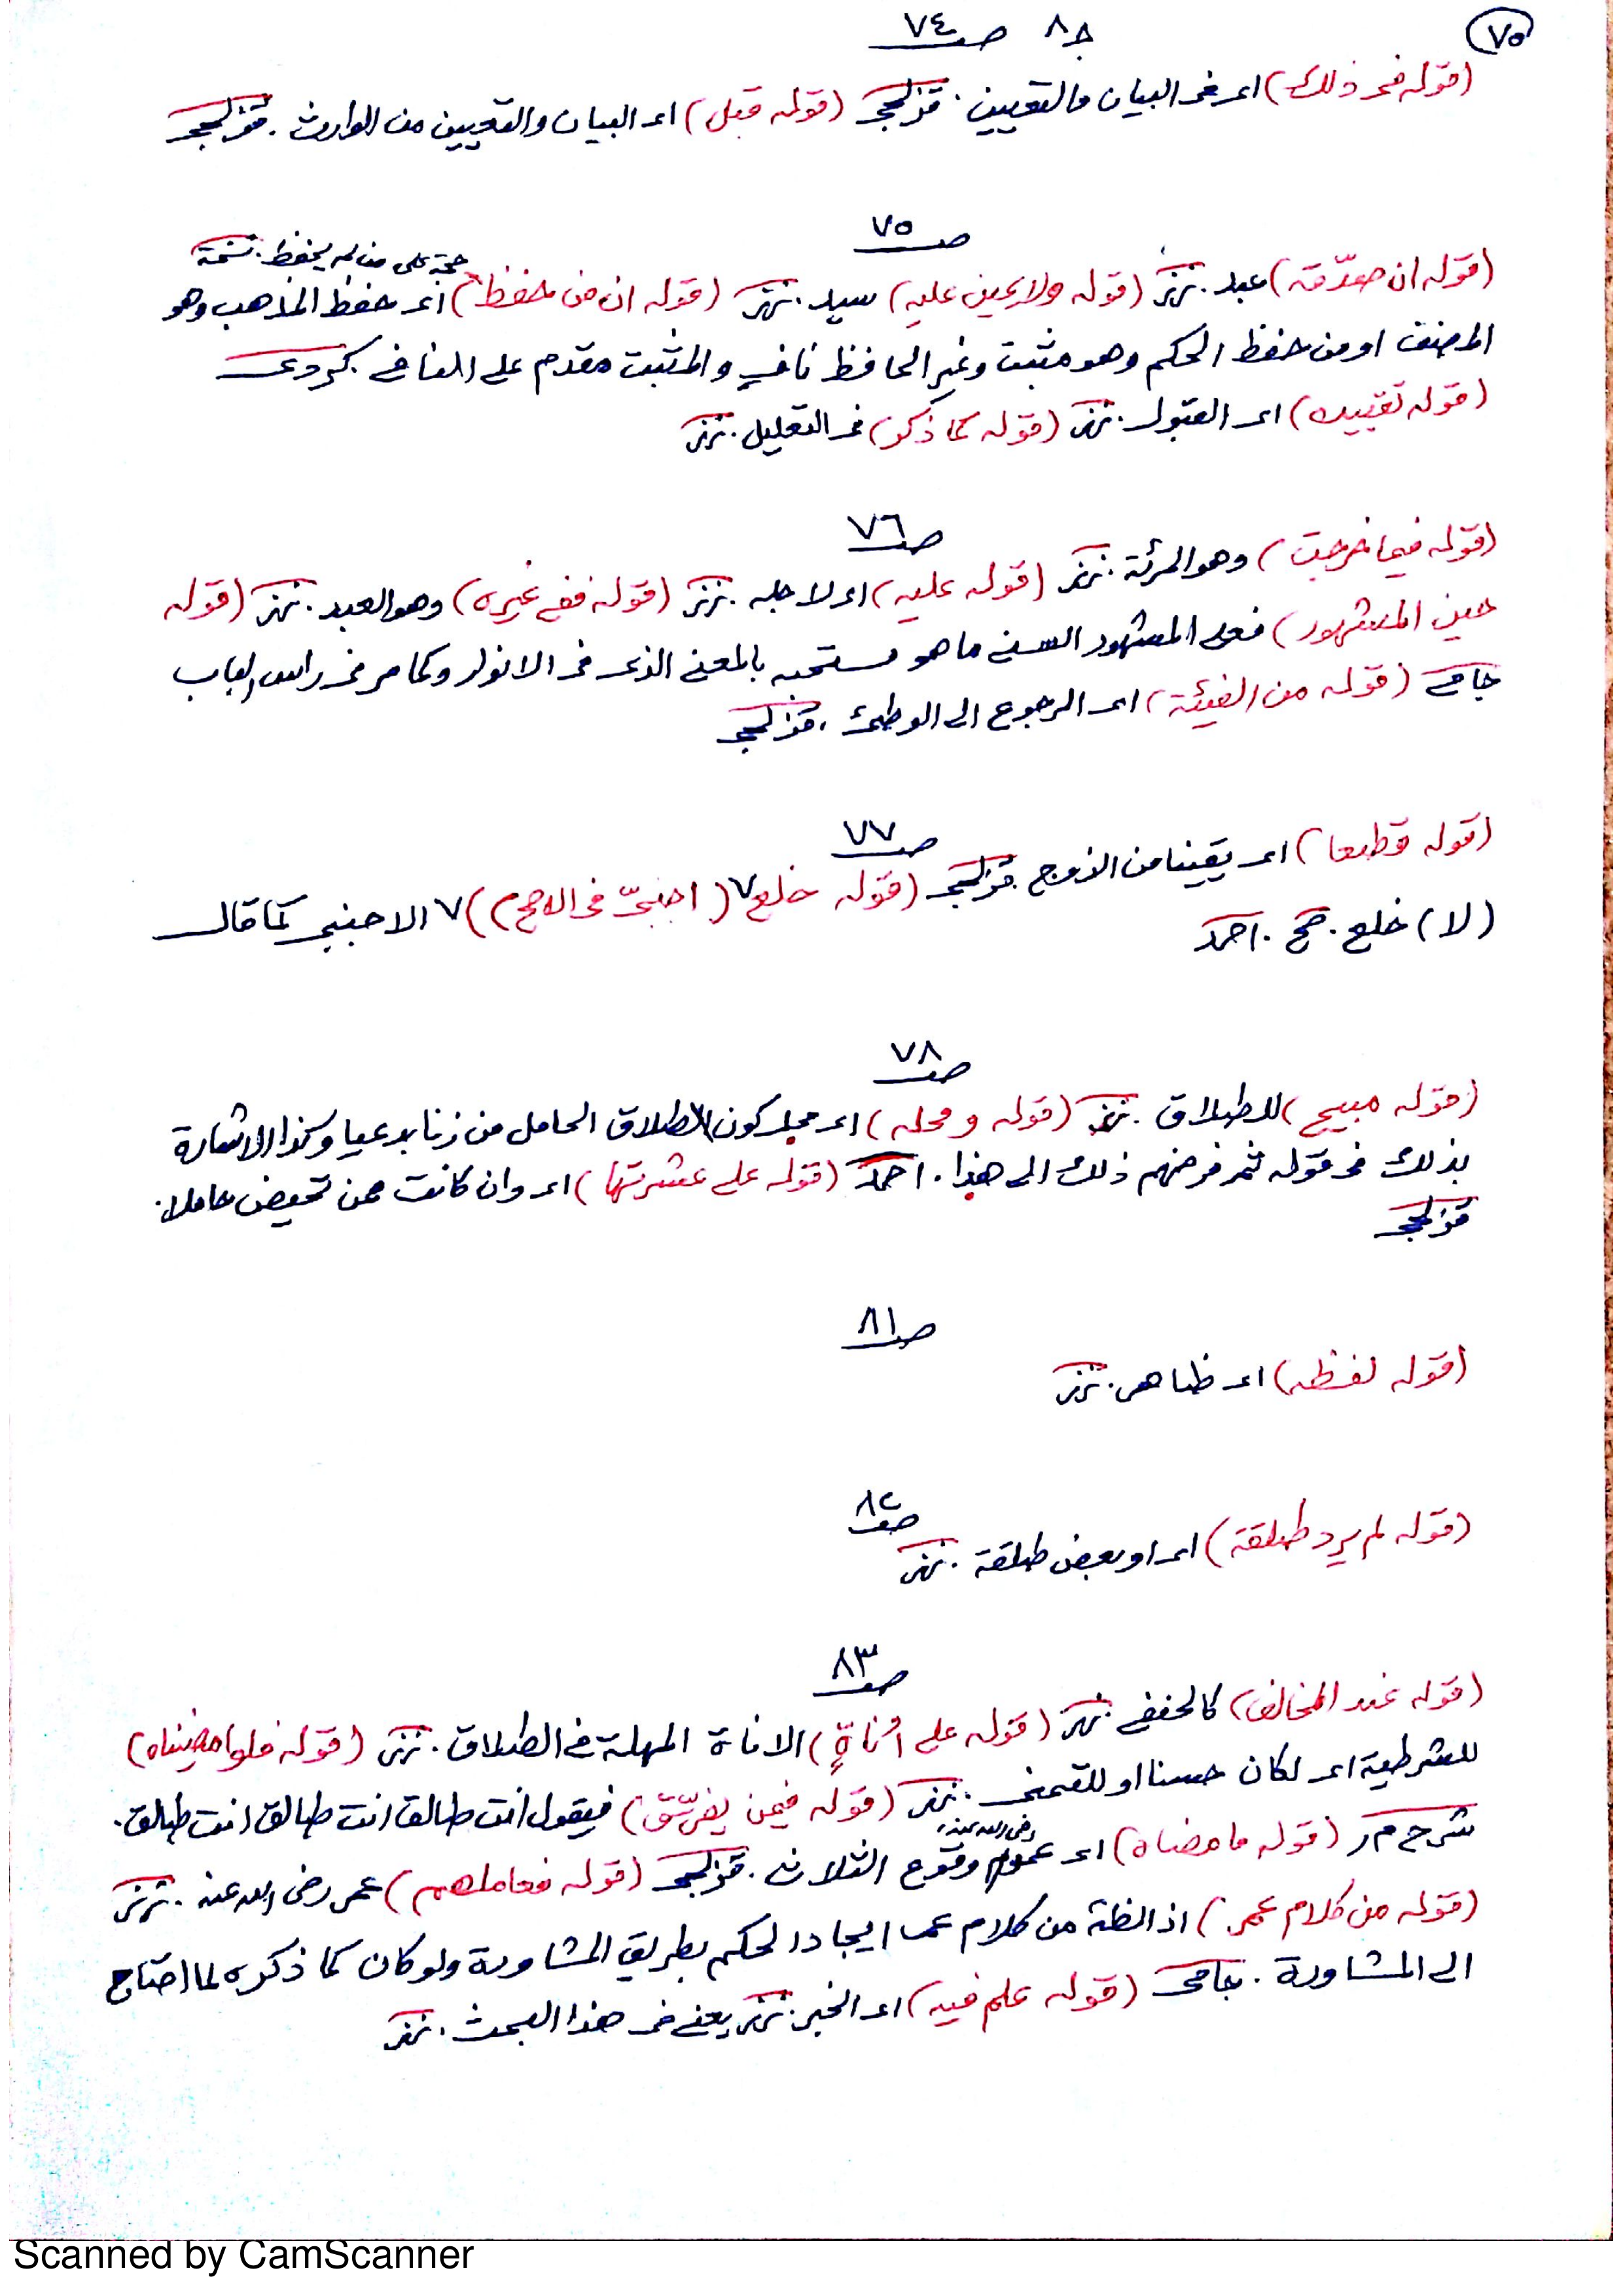 ٧٥
ج ٨ صـ ٧٤
(قوله في ذلك) اى فى البيان والتعيين. قزلجى (قوله قبل) اى البيان والتعيين من الوارث. قزلجى
صـ ٧٥
حجة على من لم يحفظ. نسخة
(قوله ان صدّقه) عبد. (قوله ولا يمين عليه) سيد. (قوله ان من حفظ) اى حفظ المذهب وهو
المصنف او من حفظ الحكم وهو مثبت وغير الحافظ نافٍ والمثبت مقدم على النافى كردى
(قوله تقييده) اى القبول. (قوله كما ذكر) فى التعليل.
صـ ٧٦
(قوله فيما خرجت) وهو المرئة. (قوله عليه) اى لاجله. (قوله ففى غيره) وهو العبد. (قوله
عين المشهور) فعلى المشهور السنى ما هو مستحب بالمعنى الذى فى الانوار وكما مر فى راس الباب
جامى (قوله من الفيئة) اى الرجوع الى الوطئ. قزلجى
صـ ٧٧
(قوله قطعا) اى يقينا من الزوج قزلجى (قوله خلع ٧ (اجنبىّ فى الاصح)) ٧ الاجنبى كما قال
(لا) خلع. صح. احمد
صـ ٧٨
(قوله مبيح) للطلاق. (قوله ومحله) اى محل كون الطلاق الحامل من زنا بدعيا وكذا الاشارة
بذلك فى قوله ثم فرضهم ذلك الى هذا. احمد (قوله على عشرتها) اى وان كانت ممن تحيض حاملا.
قزلجى
صـ ٨١
(قوله لفظه) اى ظاهر.
صـ ٨٢
(قوله لم يرد طلقة) اى او بعض طلقة.
صـ ٨٣
(قوله عند المخالف) كالحنفى (قوله على اُناةٍ) الاناة المهلة فى الطلاق. (قوله فلو امضيناه)
للشرطية اى لكان حسنا او للتمنى. (قوله فيمن يفرّق) فيقول انت طالق انت طالق انت طالق.
رضى الله عنه
شرح م ر (قوله ما مضاه) اى عموم وقوع الثلاث. قزلجى (قوله فعاملهم) عمر رضى الله عنه.
(قوله من كلام عمر) اذ الظة من كلام عمـ ايجاد الحكم بطريق المشاورة ولو كان كما ذكره لما احتاج
الى المشاورة. جامى (قوله علم فيه) اى الخبر. يعنى فى هذا البحث.
Scanned by CamScanner